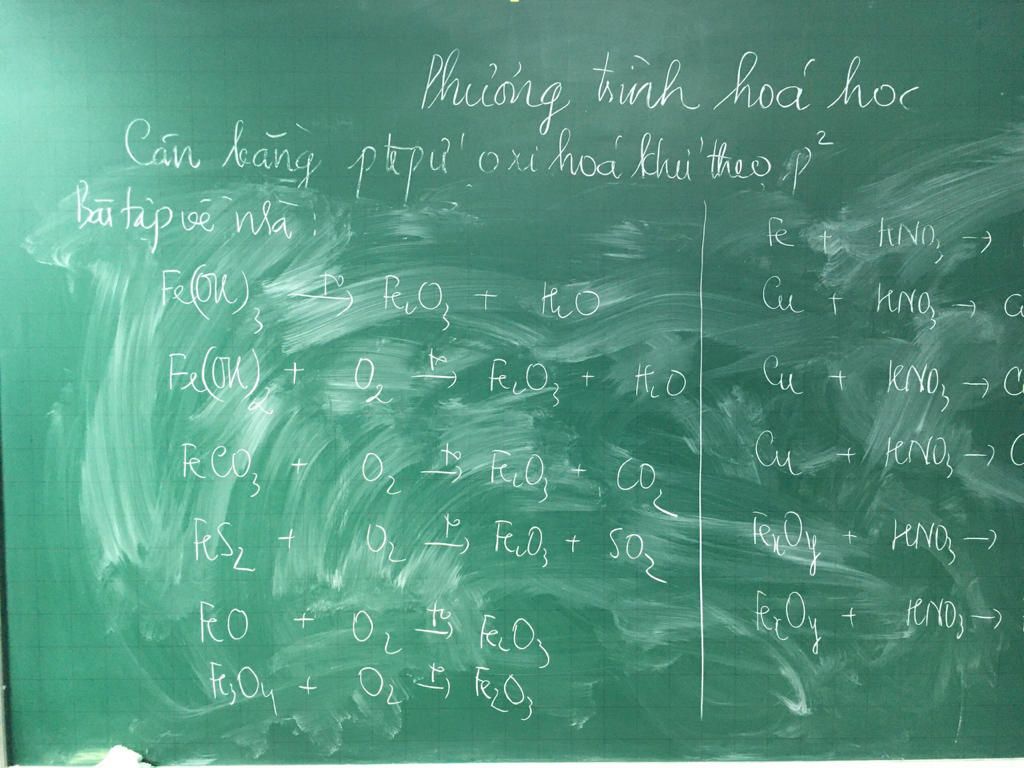 Phương trình hoá học
Cân bằng ptpư oxi hoá khử theo p²
Bài tập về nhà :
Fe(OH)₃ t° → Fe₂O₃ + H₂O
Fe(OH)₂ + O₂ t° → Fe₂O₃ + H₂O
FeCO₃ + O₂ t° → Fe₂O₃ + CO₂
FeS₂ + O₂ t° → Fe₂O₃ + SO₂
FeO + O₂ t° → Fe₂O₃
Fe₃O₄ + O₂ t° → Fe₂O₃
Fe + HNO₃ →
Cu + HNO₃ → C
Cu + HNO₃ → C
Cu + HNO₃ → C
FeₓOy + HNO₃ →
FeₓOy + HNO₃ →